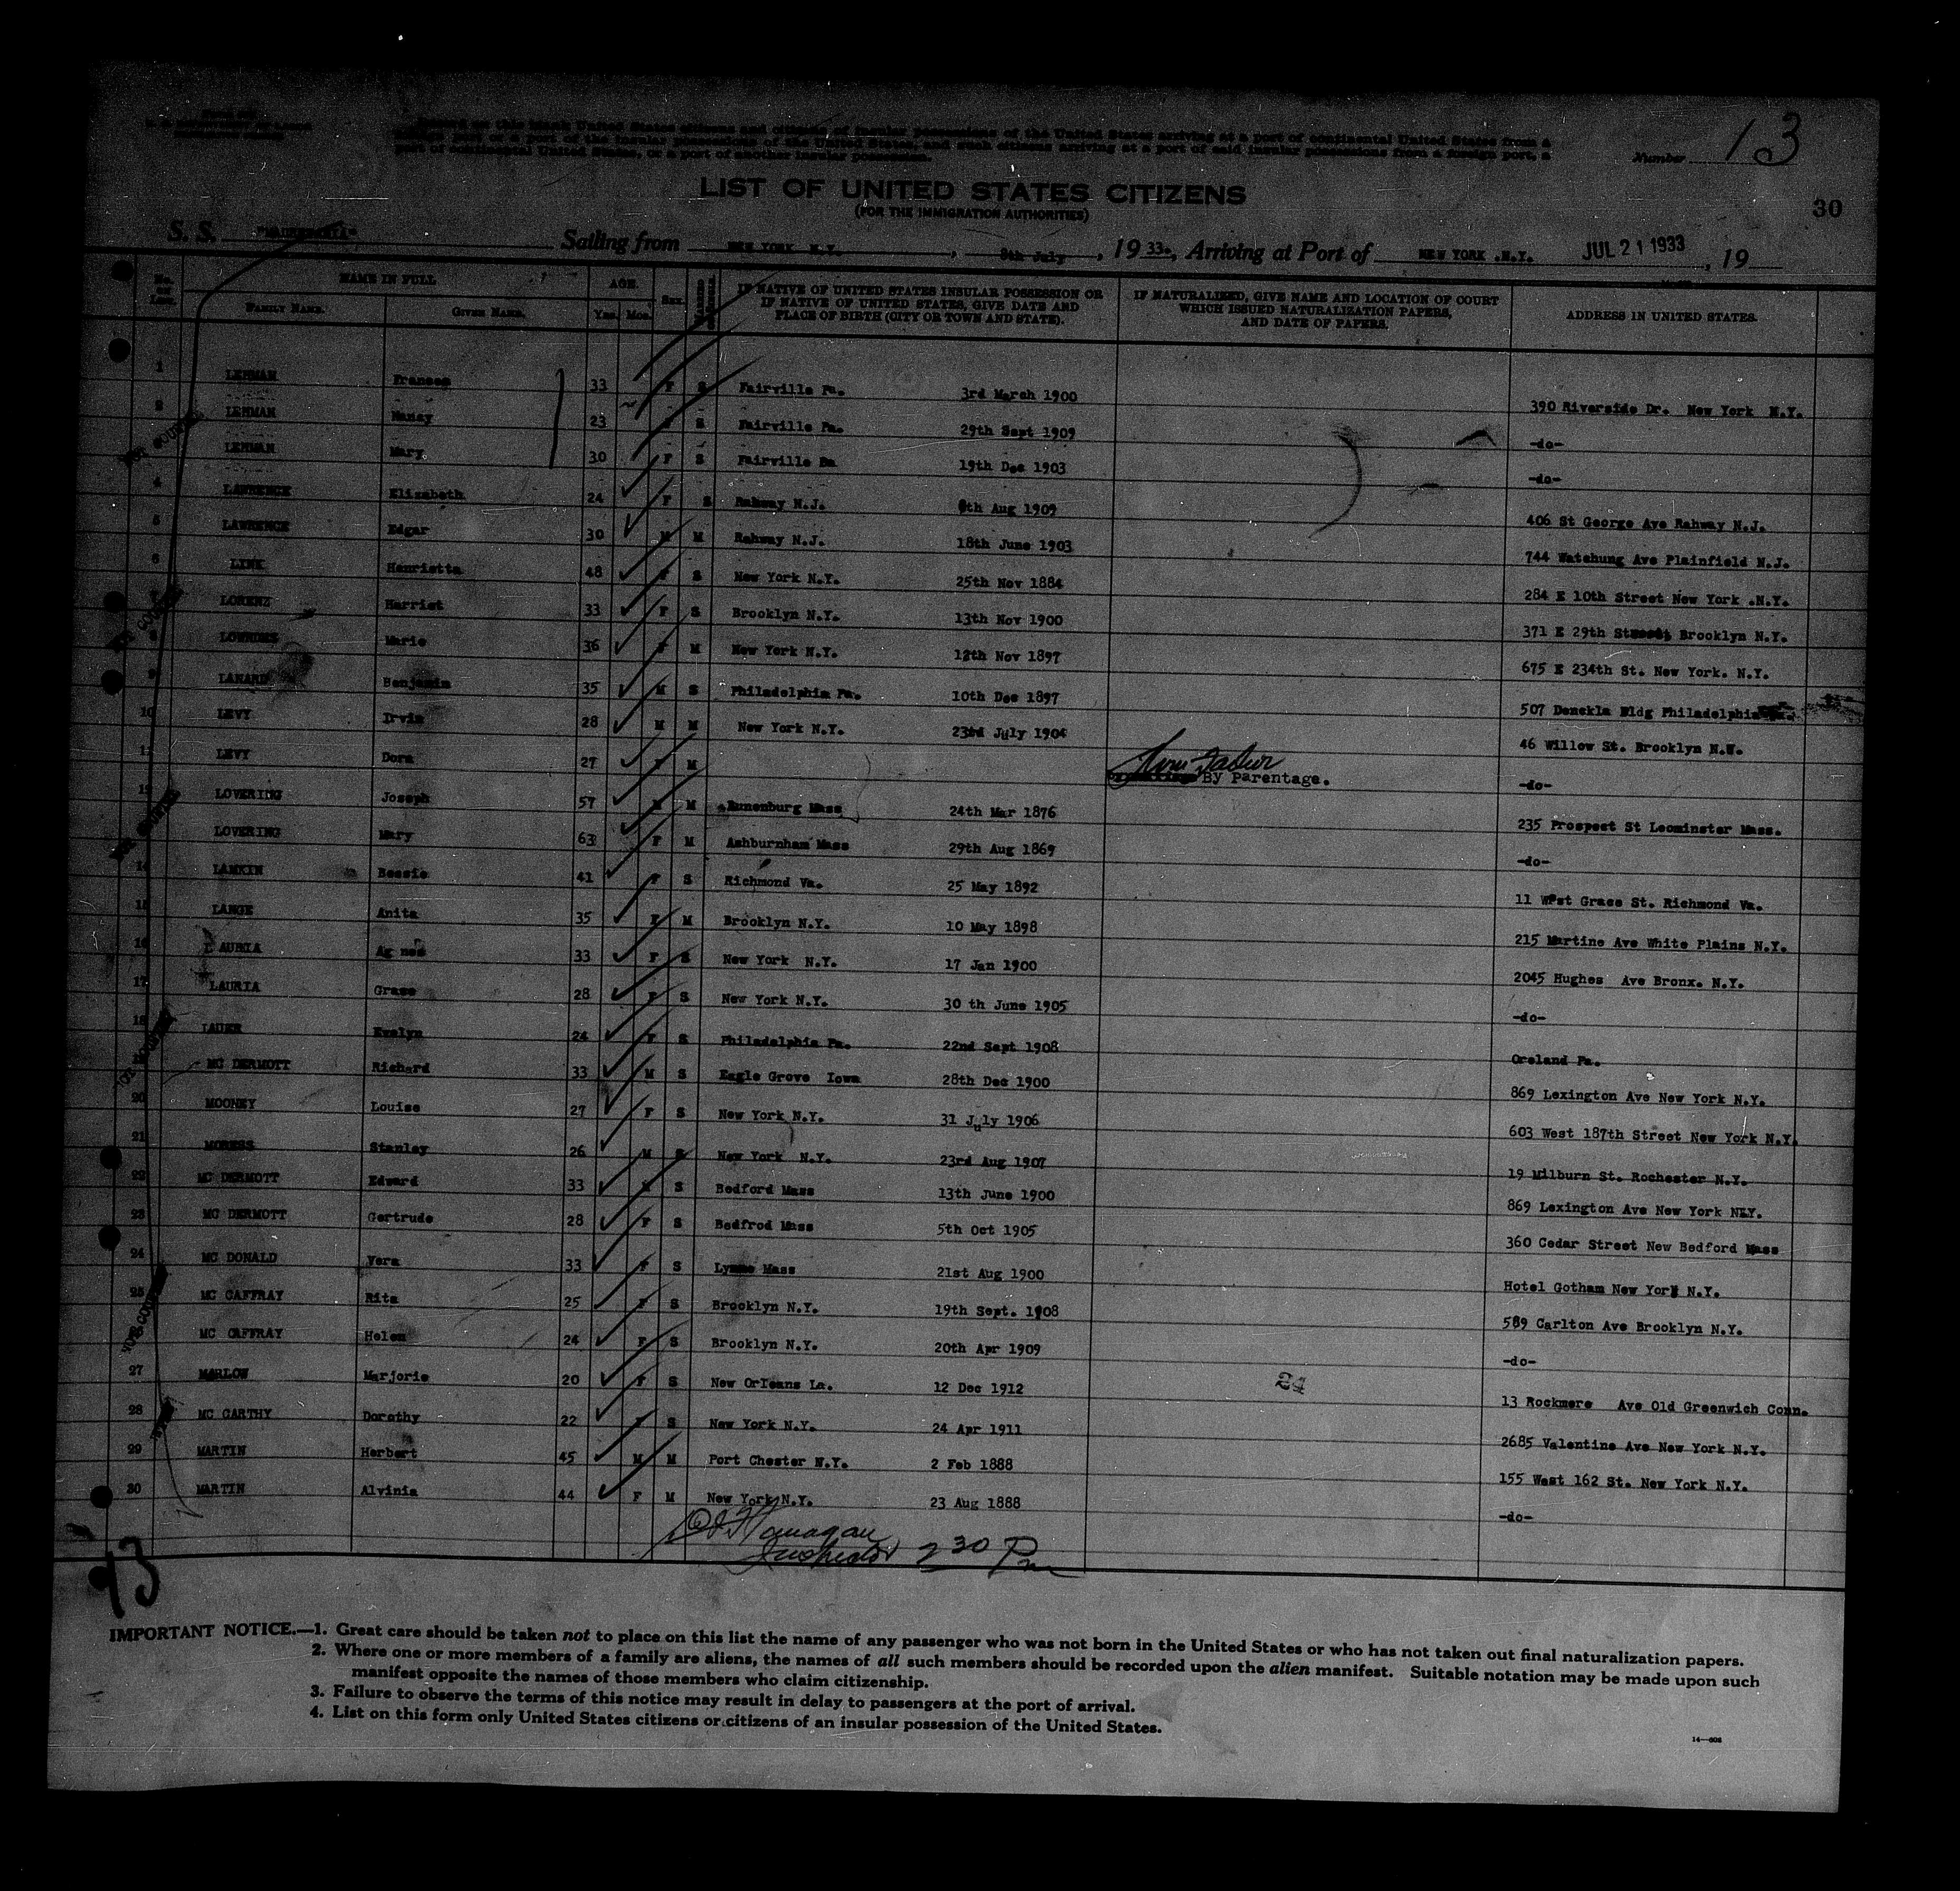 Number 13
LIST OF UNITED STATES CITIZENS
(FOR THE IMMIGRATION AUTHORITIES)
30
S. S. Sailing from NEW YORK N.Y. , 8th July , 19 33. , Arriving at Port of NEW YORK .N.Y. JUL 21 1933 , 19
No. on List. NAME IN FULL AGE. Sex. IF NATIVE OF UNITED STATES INSULAR POSSESSION OR IF NATIVE OF UNITED STATES, GIVE DATE AND PLACE OF BIRTH (CITY OR TOWN AND STATE). IF NATURALIZED, GIVE NAME AND LOCATION OF COURT WHICH ISSUED NATURALIZATION PAPERS, AND DATE OF PAPERS. ADDRESS IN UNITED STATES.
FAMILY NAME. GIVEN NAME. Yrs. Mos.
1 LEHMAN Frances 33 F S Fairville Pa. 3rd March 1900 390 Riverside Dr. New York N.Y.
2 LEHMAN Nancy 23 S Fairville Pa. 29th Sept 1909 -do-
LEHMAN Mary 30 F S Fairville Pa 19th Dec 1903 -do-
4 LAWRENCE Elizabeth 24 F S Rahway N.J. 8th Aug 1909 406 St George Ave Rahway N.J.
5 LAWRENCE Edgar 30 M M Rahway N.J. 18th June 1903 744 Watchung Ave Plainfield N.J.
6 LINK Henrietta 48 F S New York N.Y. 25th Nov 1884 284 E 10th Street New York .N.Y.
7 LORENZ Harriet 33 F S Brooklyn N.Y. 13th Nov 1900 371 E 29th Street Brooklyn N.Y.
8 LOWNDES Marie 36 F M New York N.Y. 12th Nov 1897 675 E 234th St. New York. N.Y.
9 LANARD Benjamin 35 M S Philadelphia Pa. 10th Dec 1897 507 Denckla Bldg Philadelphia
10 LEVY Irvin 28 M M New York N.Y. 23rd July 1904 46 Willow St. Brooklyn N.W.
11 LEVY Dora 27 F M By Parentage. -do-
12 LOVERING Joseph 57 M M Lunenburg Mass 24th Mar 1876 235 Prospect St Leominster Mass.
LOVERING Mary 63 F M Ashburnham Mass 29th Aug 1869 -do-
14 LAMKIN Bessie 41 F S Richmond Va. 25 May 1892 11 West Grace St. Richmond Va.
15 LANGE Anita 35 F M Brooklyn N.Y. 10 May 1898 215 Martine Ave White Plains N.Y.
16 LAURIA Ag nes 33 F S New York N.Y. 17 Jan 1900 2045 Hughes Ave Bronx. N.Y.
17 LAURIA Grace 28 F S New York N.Y. 30 th June 1905 -do-
18 LAUER Evelyn 24 F S Philadelphia Pa. 22nd Sept 1908 Oreland Pa.
MC DERMOTT Richard 33 M S Eagle Grove Iowa 28th Dec 1900 869 Lexington Ave New York N.Y.
20 MOONEY Louise 27 F S New York N.Y. 31 July 1906 603 West 187th Street New York N.Y.
21 MORESS Stanley 26 M S New York N.Y. 23rd Aug 1907 19 Milburn St. Rochester N.Y.
22 MC DERMOTT Edward 33 M S Bedford Mass 13th June 1900 869 Lexington Ave New York N.Y.
23 MC DERMOTT Gertrude 28 F S Bedfrod Mass 5th Oct 1905 360 Cedar Street New Bedford Mass
24 MC DONALD Vera 33 F S Lynne Mass 21st Aug 1900 Hotel Gotham New York N.Y.
25 MC CAFFRAY Rita 25 F S Brooklyn N.Y. 19th Sept. 1908 589 Carlton Ave Brooklyn N.Y.
MC CAFFRAY Helen 24 F S Brooklyn N.Y. 20th Apr 1909 -do-
27 MARLOW Marjorie 20 F S New Orleans La. 12 Dec 1912 24 13 Rockmere Ave Old Greenwich Conn.
28 MC CARTHY Dorothy 22 F S New York N.Y. 24 Apr 1911 2685 Valentine Ave New York N.Y.
29 MARTIN Herbert 45 M M Port Chester N.Y. 2 Feb 1888 155 West 162 St. New York N.Y.
30 MARTIN Alvinia 44 F M New York N.Y. 23 Aug 1888 -do-
Flanagan
Inspector 2 30 Pm
13
IMPORTANT NOTICE.—1. Great care should be taken not to place on this list the name of any passenger who was not born in the United States or who has not taken out final naturalization papers.
2. Where one or more members of a family are aliens, the names of all such members should be recorded upon the alien manifest. Suitable notation may be made upon such
manifest opposite the names of those members who claim citizenship.
3. Failure to observe the terms of this notice may result in delay to passengers at the port of arrival.
4. List on this form only United States citizens or citizens of an insular possession of the United States.
14—608